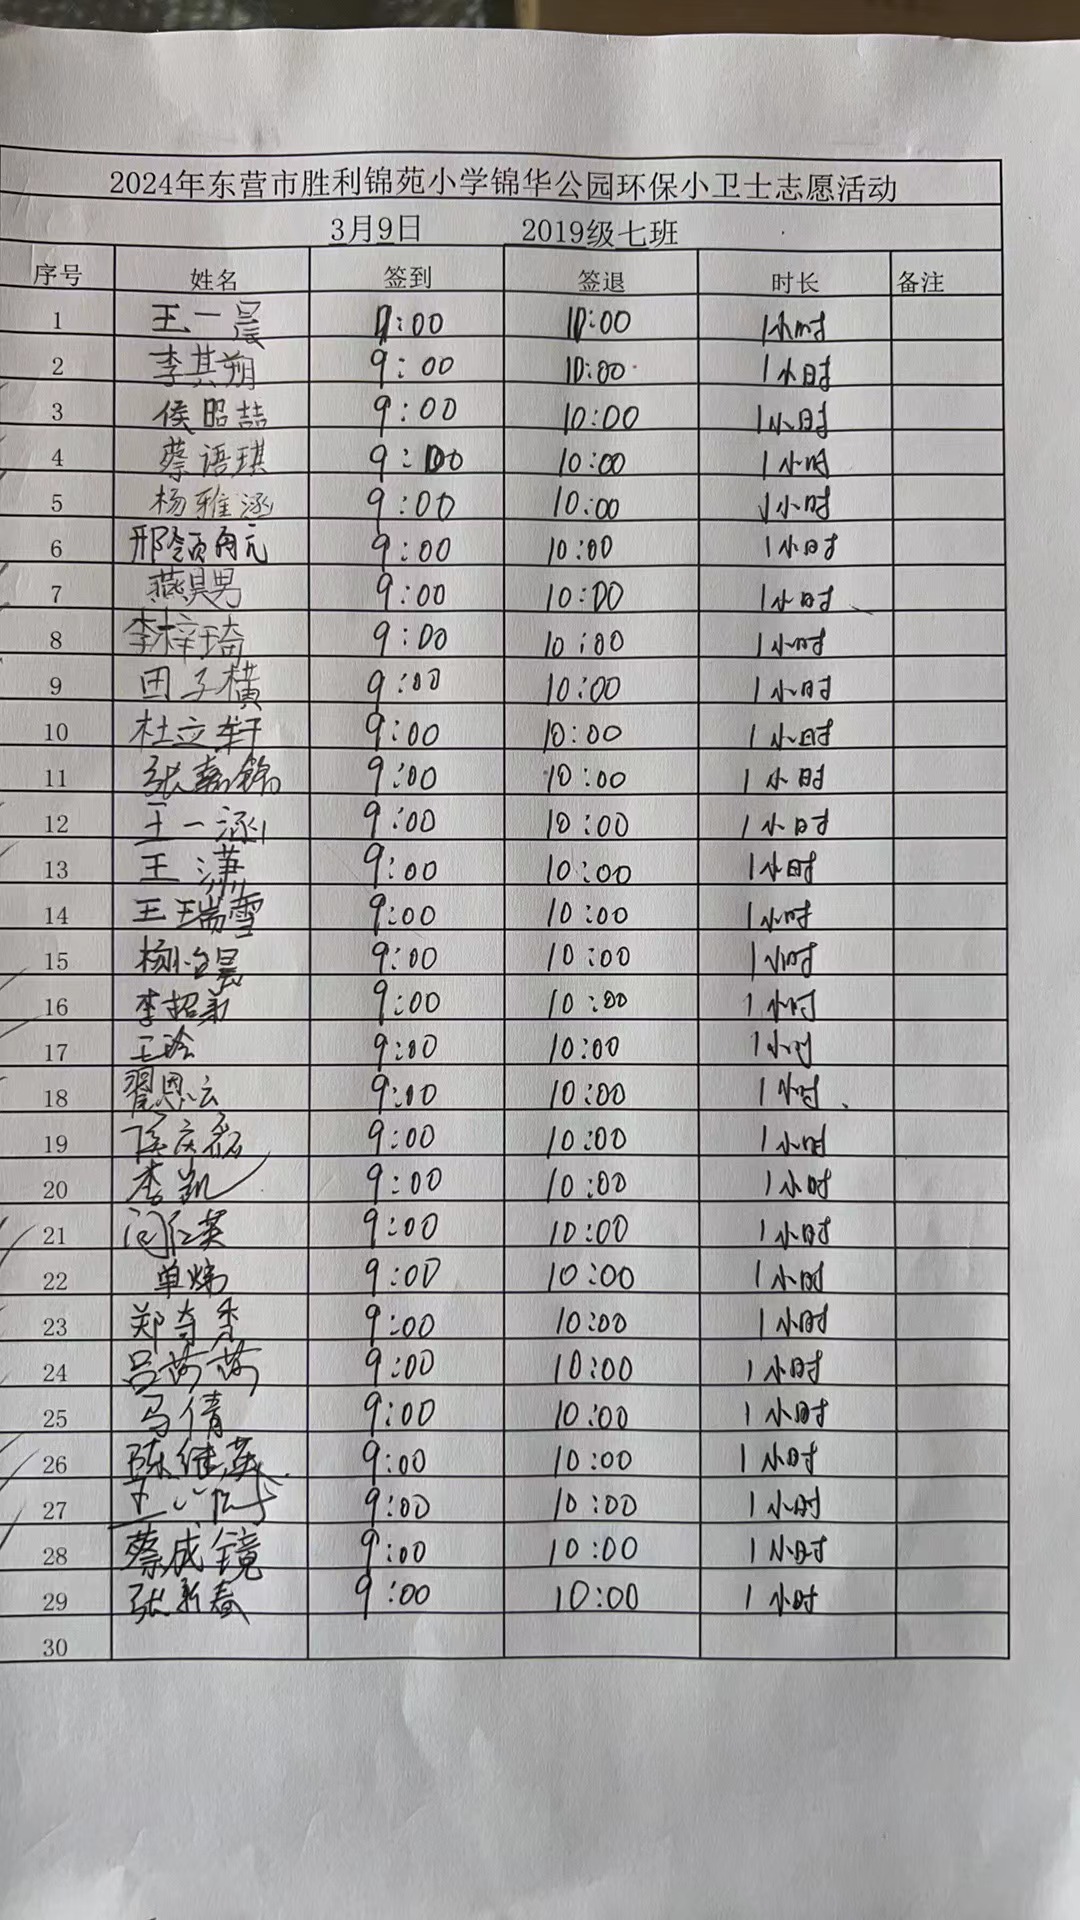 2024年东营市胜利锦苑小学锦华公园环保小卫士志愿活动
3月9日 2019级七班
序号 姓名 签到 签退 时长 备注
1 王一晨 9:00 10:00 1小时
2 李其朔 9:00 10:00 1小时
3 侯昭喆 9:00 10:00 1小时
4 蔡语琪 9:00 10:00 1小时
5 杨雅涵 9:00 10:00 1小时
6 邢领航 9:00 10:00 1小时
7 燕昊男 9:00 10:00 1小时
8 李梓琦 9:00 10:00 1小时
9 田子横 9:00 10:00 1小时
10 杜立轩 9:00 10:00 1小时
11 张嘉锦 9:00 10:00 1小时
12 王一涵 9:00 10:00 1小时
13 王潇 9:00 10:00 1小时
14 王瑞雪 9:00 10:00 1小时
15 9:00 10:00 1小时
16 李超弟 9:00 10:00 1小时
17 王玲 9:00 10:00 1小时
18 翟恩云 9:00 10:00 1小时
19 庆磊 9:00 10:00 1小时
20 李凯 9:00 10:00 1小时
21 9:00 10:00 1小时
22 单炜 9:00 10:00 1小时
23 郑奇秀 9:00 10:00 1小时
24 吕芳芳 9:00 10:00 1小时
25 马倩 9:00 10:00 1小时
26 陈继英 9:00 10:00 1小时
27 9:00 10:00 1小时
28 蔡成镜 9:00 10:00 1小时
29 张新春 9:00 10:00 1小时
30